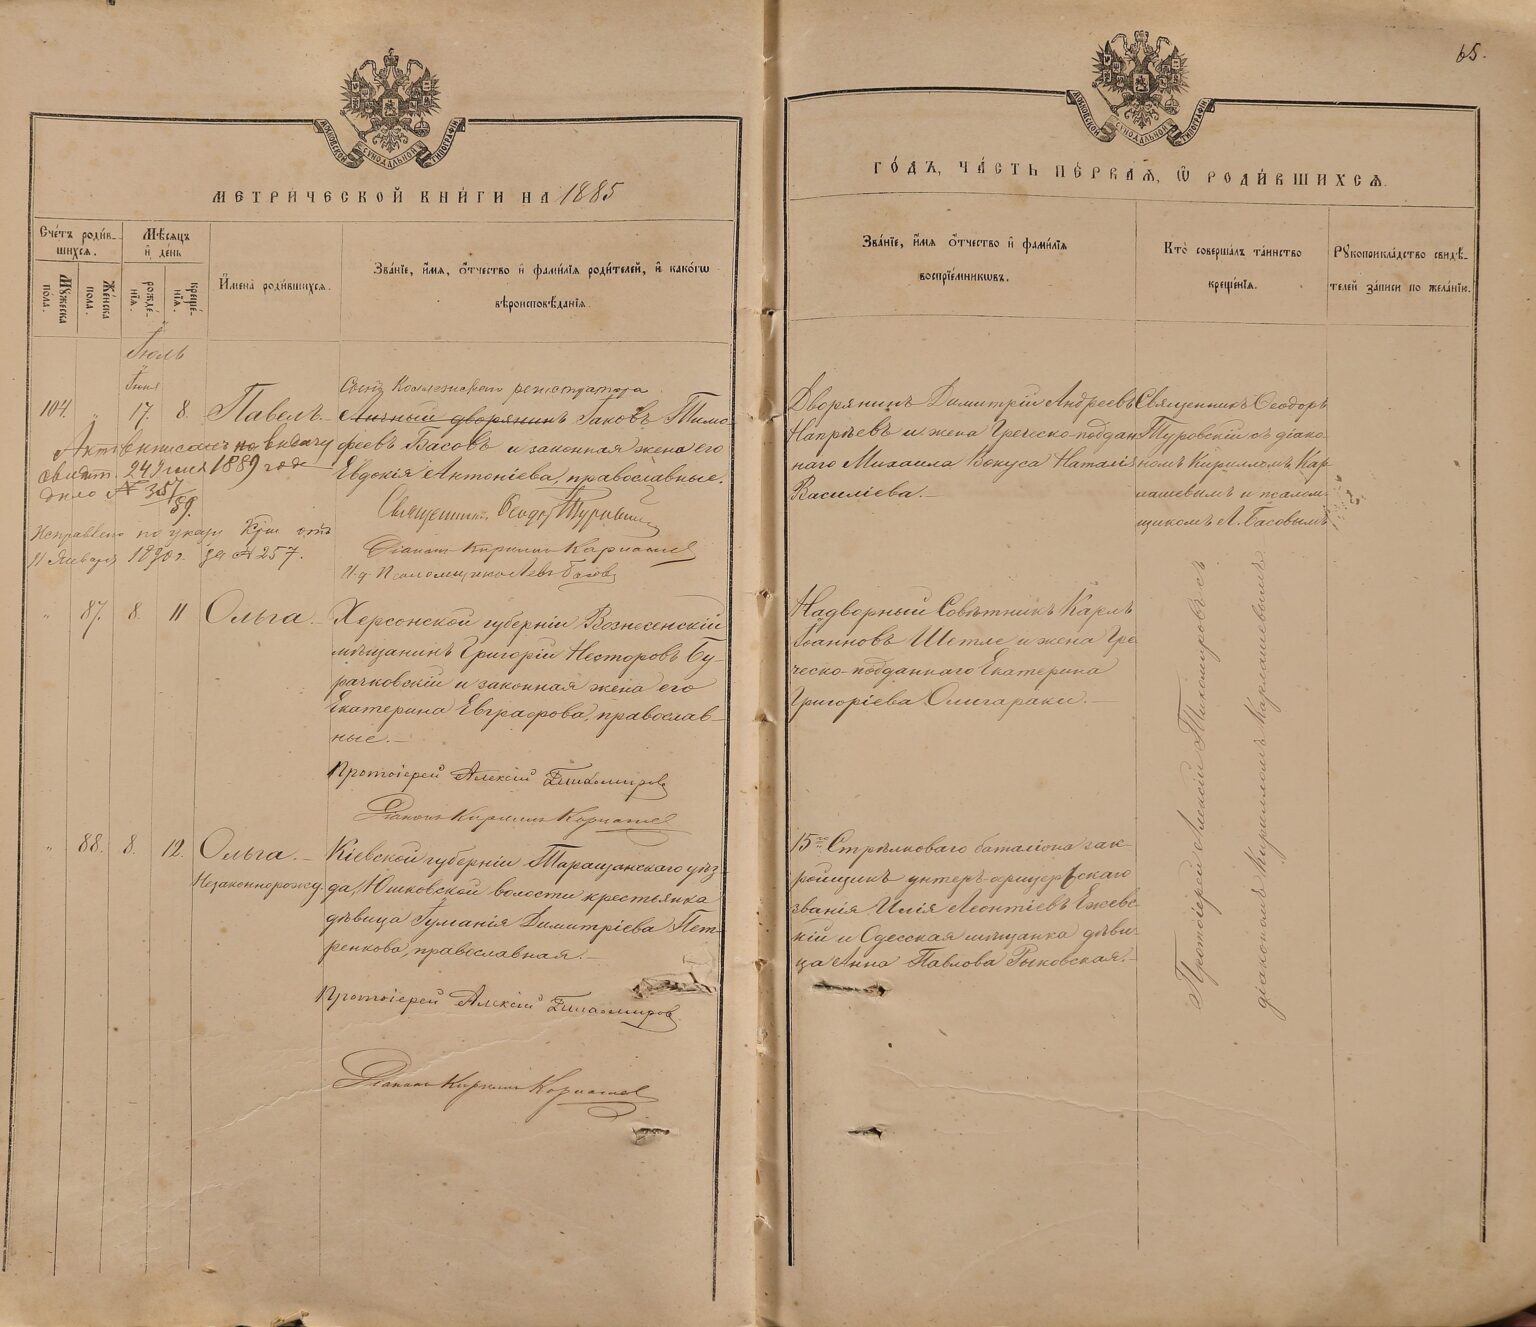 65.
МОСКОВСКОЙ СУНОДАЛЬНОЙ ТИПОГРАФІИ
МОСКОВСКОЙ СУНОДАЛЬНОЙ ТИПОГРАФІИ
МЕТРИ́ЧЕСКОЙ КНИ́ГИ НА 1885
ГО́ДЪ, ЧА́СТЬ ПЕ́РВАѦ, Ѽ РОДИ́ВШИХСѦ.
Сче́тъ роди́в-
шихсѧ.
Мѣ́сѧцъ
и҆ де́нь
Мꙋ́жеска
пола.
Же́нска
пола.
рожде́-
нїѧ.
креще́-
нїѧ.
И҆мена̀ роди́вшихсѧ.
Зва́нїе, и҆́мѧ, ѻ҆́тчество и҆ фами́лїѧ роди́телей, и҆ како́гѡ
вѣроисповѣ́данїѧ.
Зва́нїе, и҆́мѧ ѻ҆́тчество и҆ фами́лїѧ
воспрїе́мникѡвъ.
Кто̀ соверша́лъ та́инство
креще́нїѧ.
Рꙋкоприкла́дство свидѣ́-
телей за́писи по жела́нїю.
Іюль
Іюня
104. " 17. 8. Павелъ.
Сынъ Коллежскаго регистратора
Личный дворянинъ Іаковъ Тимо-
феевъ Басовъ и законная жена его
Евдокія Антоніева, православные.
Священникъ Ѳеодоръ Туровскій
Діаконъ Кириллъ Карпашев
И. д. Псаломщика Левъ Басовъ
Актъ выписанъ по выдачу
свидѣт. 24 Іюля 1889 года
дѣло № 357/89.
Исправлено по указу К. отъ
11 Января 1890 г. за № 257.
Дворянинъ Димитрій Андреевъ
Напрѣевъ и жена Греческо-поддан
наго Михаила Вокуса Наталія
Василіева.—
Священникъ Ѳеодоръ
Туровскій съ діако-
номъ Кирилломъ Кар-
пашевымъ и псалом-
щикомъ Л. Басовымъ
" 87. 8. 11 Ольга.—
Херсонской губерніи Вознесенскій
мѣщанинъ Григорій Несторовъ Бу-
рачковскій и законная жена его
Екатерина Евграфова, православ-
ные.—
Протоіерей Алексій Тихомировъ
Діаконъ Кириллъ Карпашев
Надворный Совѣтникъ Карлъ
Іоанновъ Шетле и жена Гре
ческо-подданнаго Екатерина
Григоріева Олигараки.—
" 88. 8. 12. Ольга.—
Незаконнорожд.
Кіевской губерніи Таращанскаго уѣз-
да, Юшковской волости крестьянка
дѣвица Іуманія Димитріева Пет-
ренкова, православная.—
Протоіерей Алексій Тихомировъ.
Діаконъ Кириллъ Карпашев
15го Стрѣлковаго баталіона зак-
ройщикъ унтеръ-офицерскаго
званія Илія Леонтіевъ Ежевс
кій и Одесская мѣщанка дѣви-
ца Анна Павлова Рыковская.—
Протоіерей Алексій Тихомировъ съ
діакономъ Кирилломъ Карпашевымъ